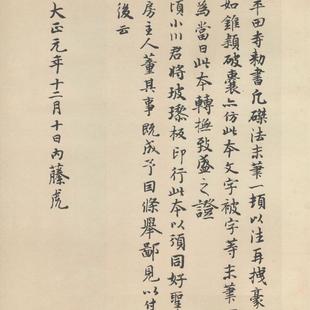 平田寺勅書凡磔法末筆一頓以注再拽豪
如錐穎破裹亦仿此本文字被字等末筆
為當日此本轉摭致盛之證
頃小川君將玻瓈板印行此本以須同好聖
房主人董其事既成予因條舉鄙見以付
後云
大正元年十二月十日内藤虎